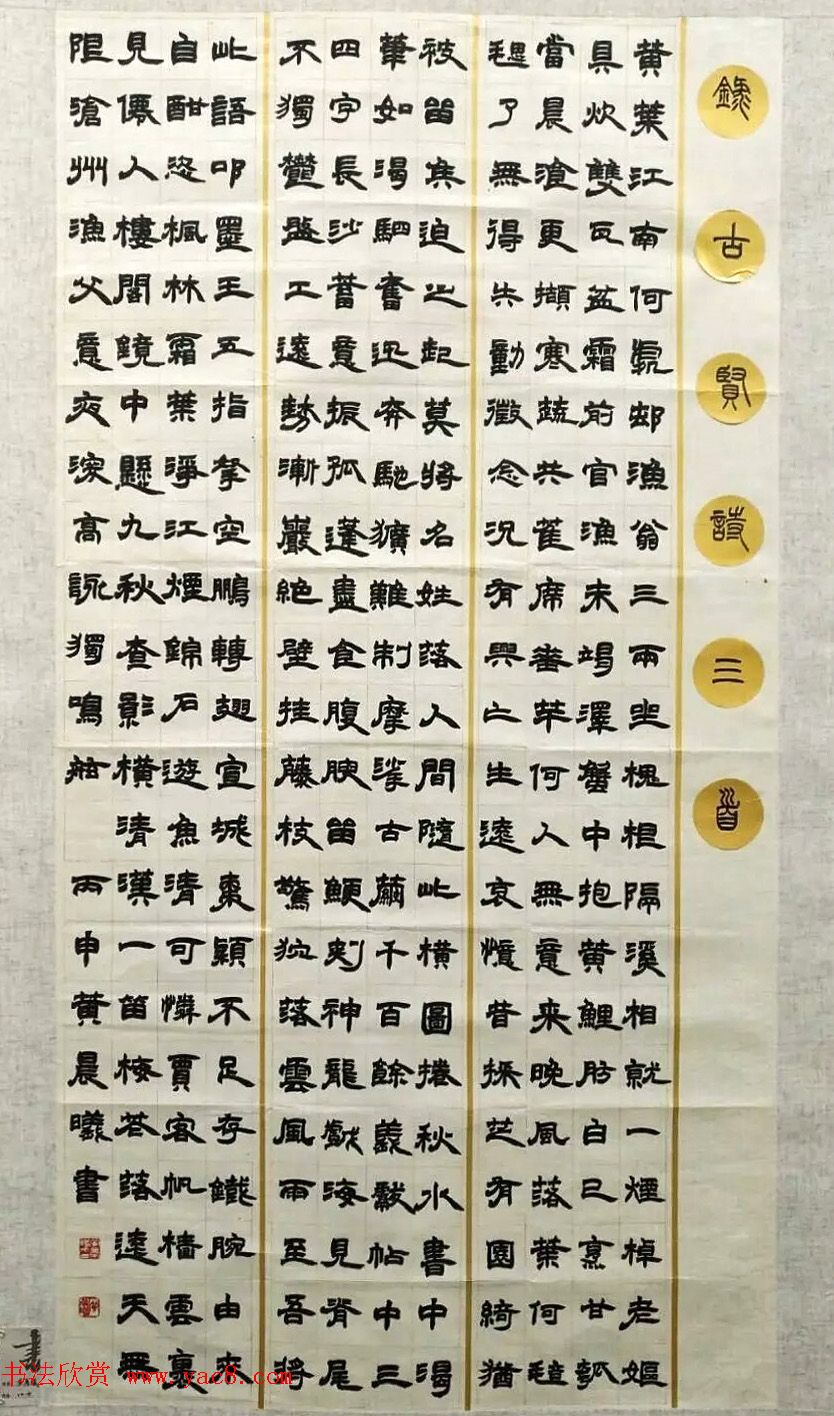 錄古賢詩三首
黃葉江南何處邨漁翁三兩坐槐根隔溪相就一煙棹老嫗
具炊雙瓦盆霜前官漁未竭澤蟹中抱黃鯉肪白已烹甘瓠
當晨湌更擷寒蔬共萑席垂竿何人無意來晚風落葉何毰
毸了無得失動微念況有興亡生遠哀憶昔採芝有園綺猶
被留侯迫之起莫將名姓落人間隨此橫圖捲秋水書中渴
筆如渴駟奮迅奔馳獷難制摩挲古繭千百餘羲獻帖中三
四字長沙蓄意振孤蓬盡食腹腴留鯁刺神龍戲海見脊尾
不獨鬱盤工遠勢漸巖絕壁挂藤枝驚狖落雲風雨至吾將
此語叩墨王五指拏空鵬轉翅宣城棗穎不足存鐵腕由來
自酣恣楓林霜葉淨江煙錦石遊魚清可憐賈客帆檣雲裏
見僊人樓閣鏡中懸九秋查影橫清漢一笛梅花落遠天無
限滄州漁父意夜深高詠獨鳴舷 丙申黃晨曦書
书法欣赏 www.yac8.com